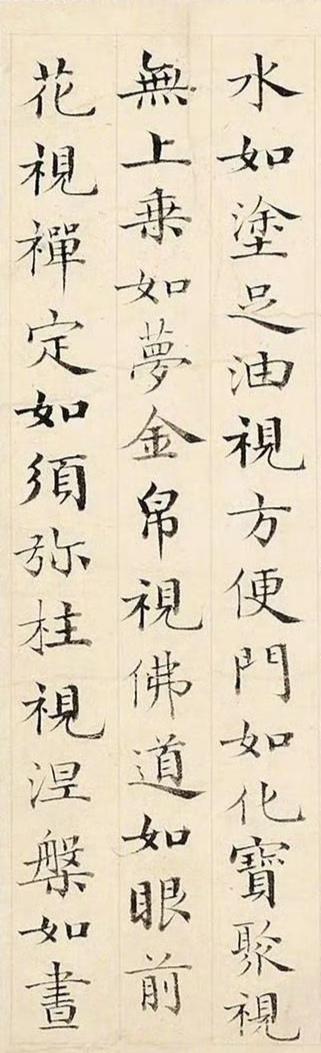 水如塗足油視方便門如化寶聚視
無上乗如夢金帛視佛道如眼前
花視禪定如須弥柱視涅槃如晝